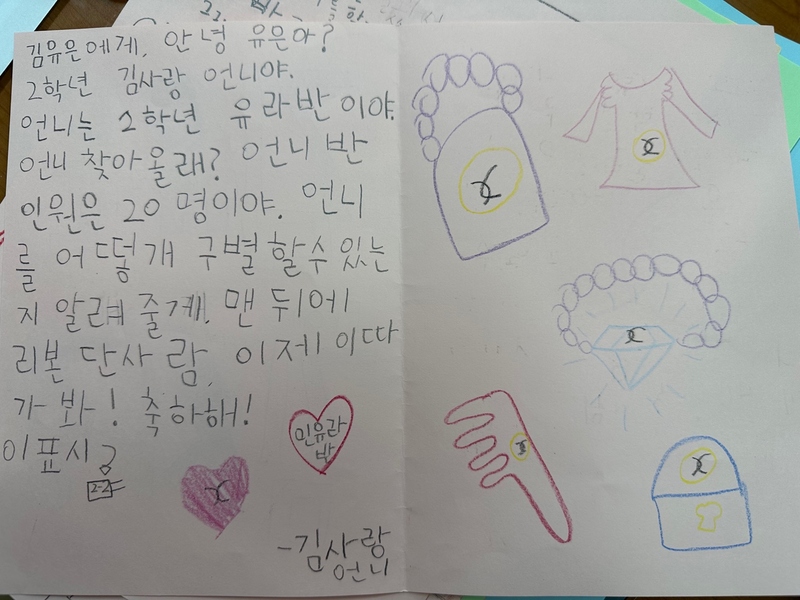 김유은에게, 안녕 유은아?
2학년 김사랑 언니야.
언니는 2학년 유라반이야.
언니 찾아올래? 언니 반
인원은 20명이야. 언니
를 어떻개 구별할수있는
지 알려줄게. 맨 뒤에
리본 단사람. 이제 이따
가 봐! 축하해!
이표시
2-2
인유라
반
-김사랑
언니